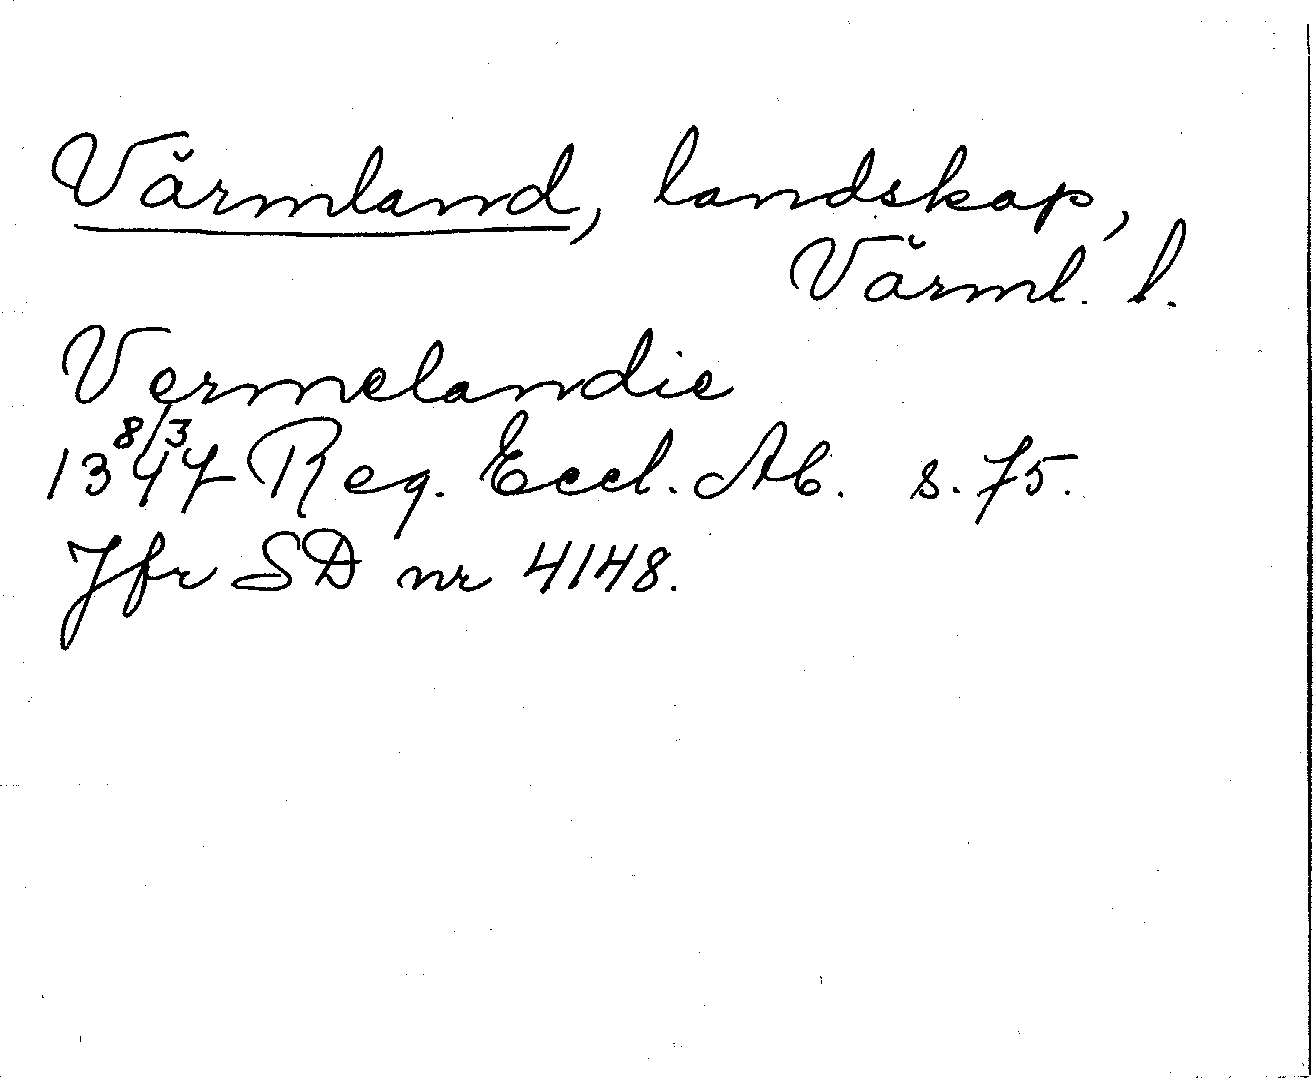 Värmland, landskap,
Värml. l.
Vermelandie
8/3
1347 Reg. Eccl. Ab. s. 75.
Jfr SD nr 4148.